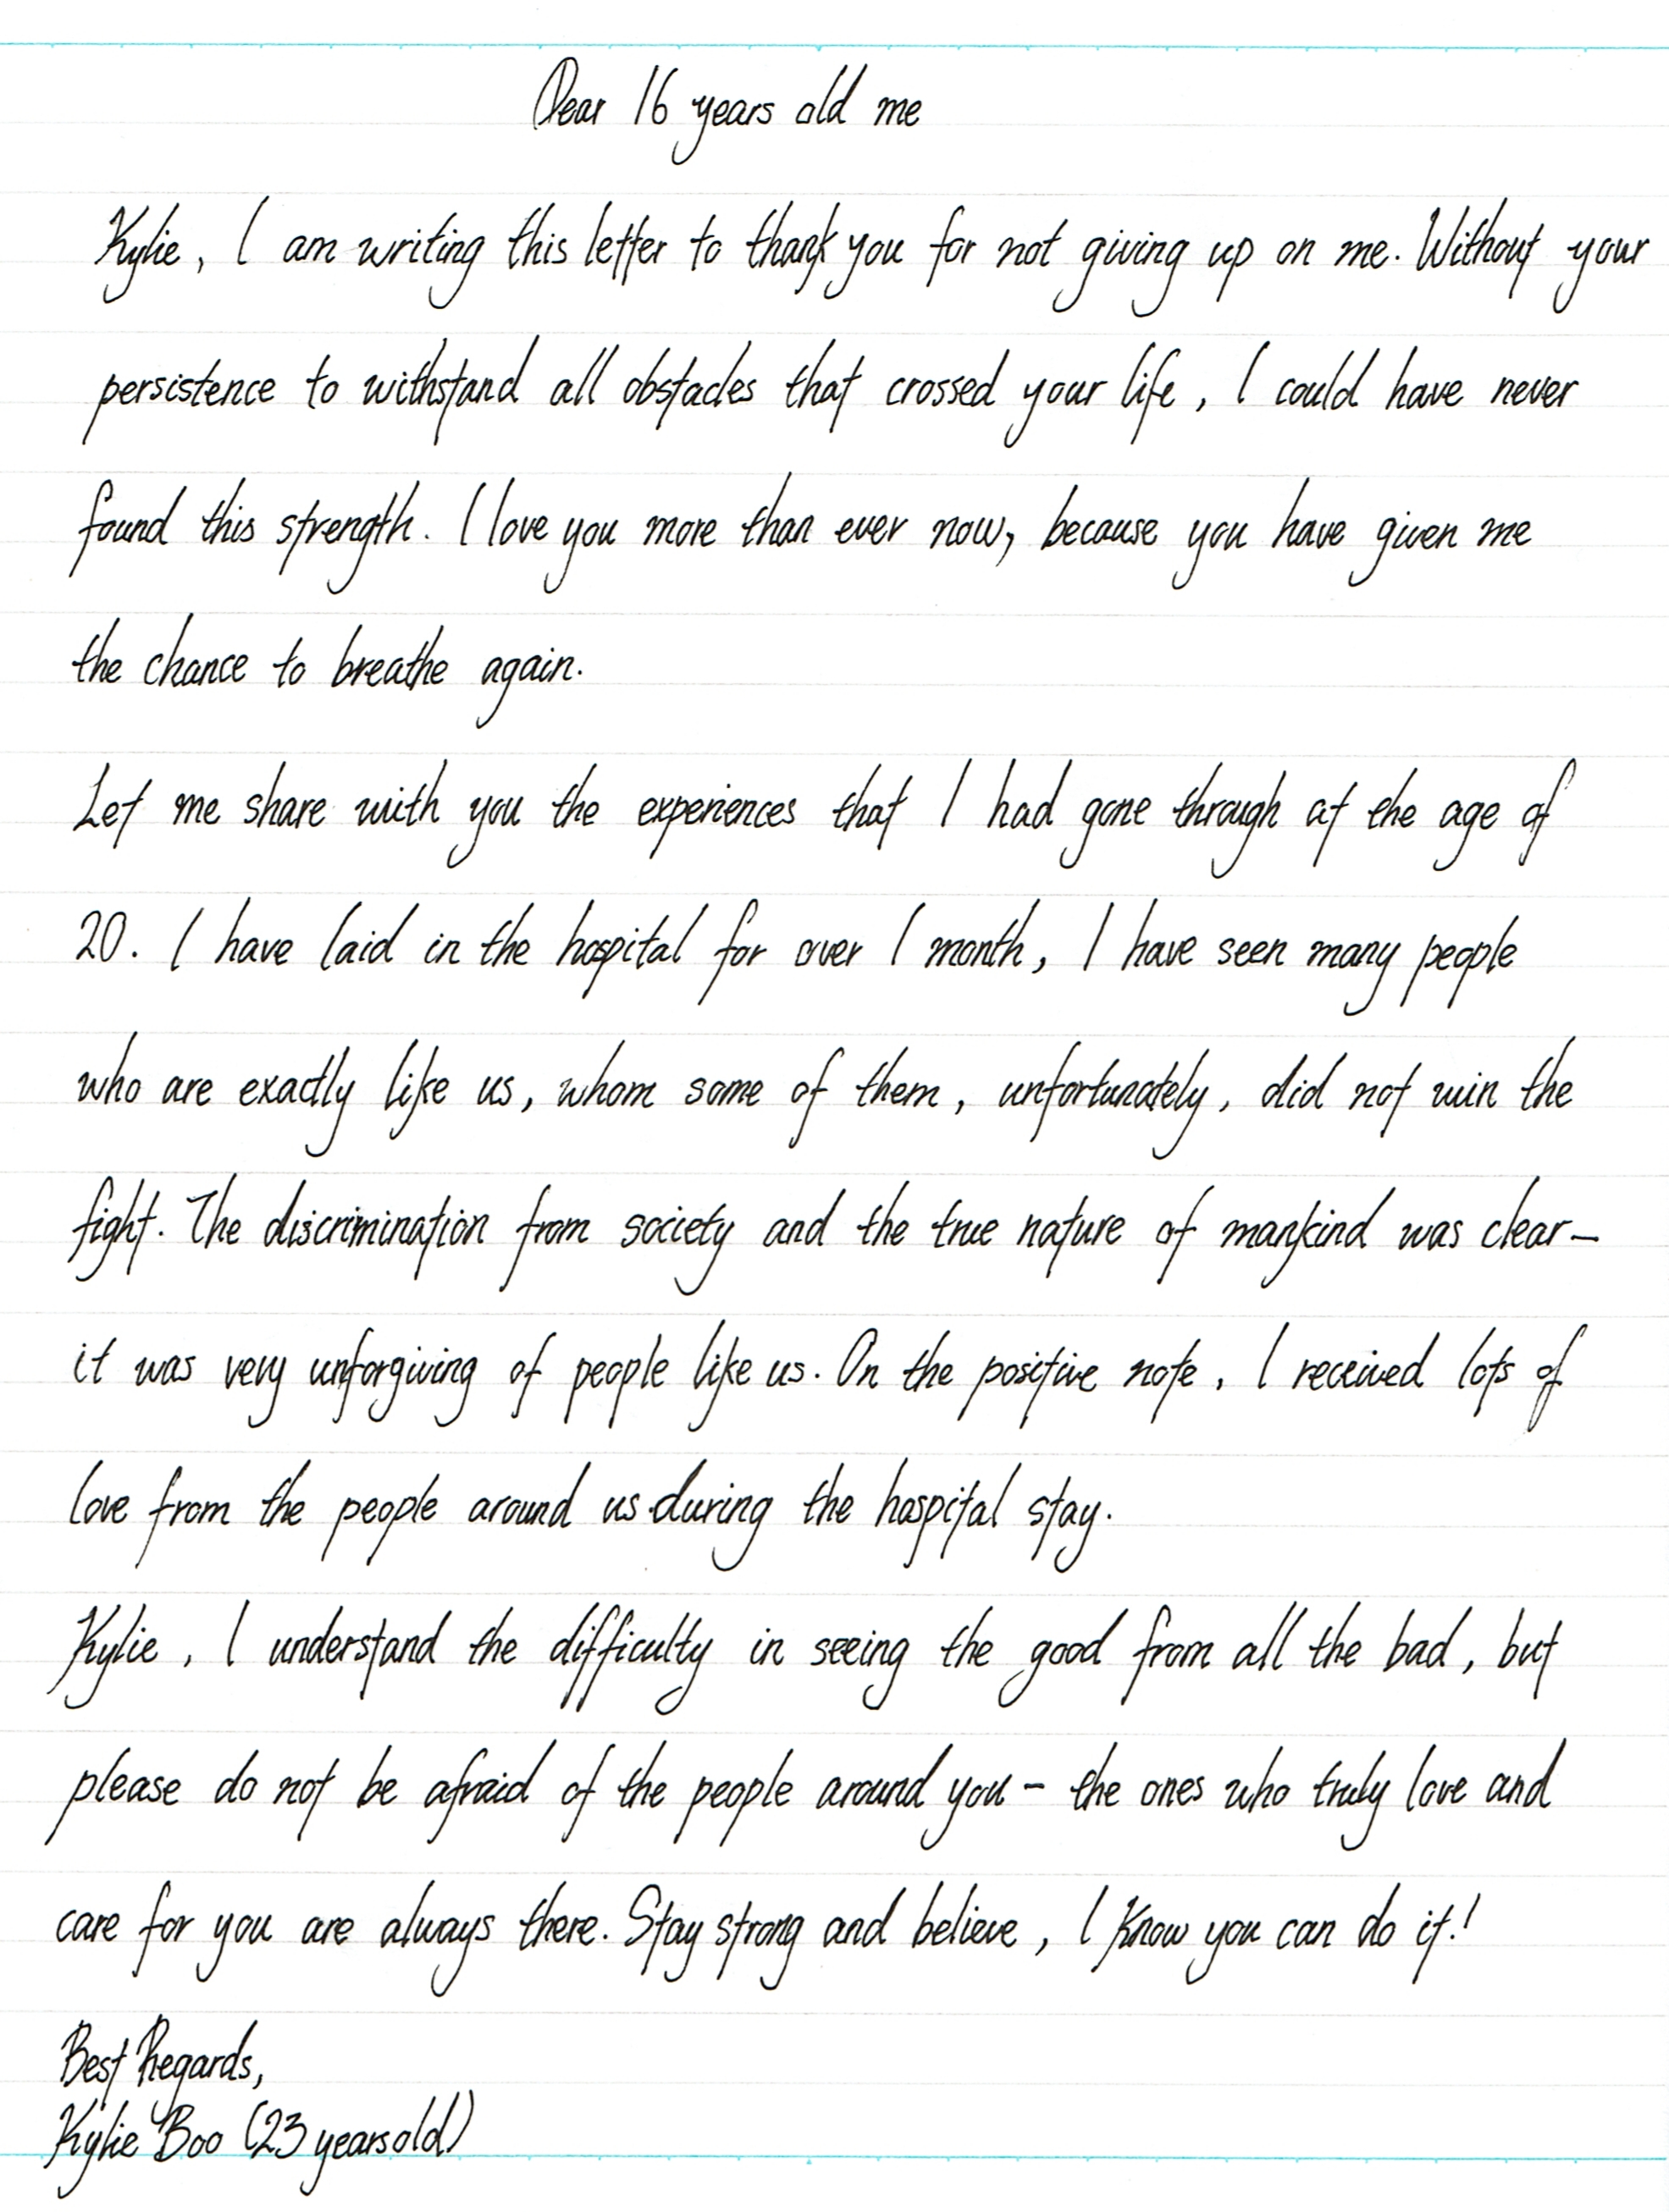 Dear 16 years old me
Kylie, I am writing this letter to thank you for not giving up on me. Without your
persistence to withstand all obstacles that crossed your life, I could have never
found this strength. I love you more than ever now, because you have given me
the chance to breathe again.
Let me share with you the experiences that I had gone through at the age of
20. I have laid in the hospital for over 1 month, I have seen many people
who are exactly like us, whom some of them, unfortunately, did not win the
fight. The discrimination from society and the true nature of mankind was clear-
it was very unforgiving of people like us. On the positive note, I received lots of
love from the people around us during the hospital stay.
Kylie, I understand the difficulty in seeing the good from all the bad, but
please do not be afraid of the people around you - the ones who truly love and
care for you are always there. Stay strong and believe, I know you can do it!
Best Regards,
Kylie Boo (23 years old)